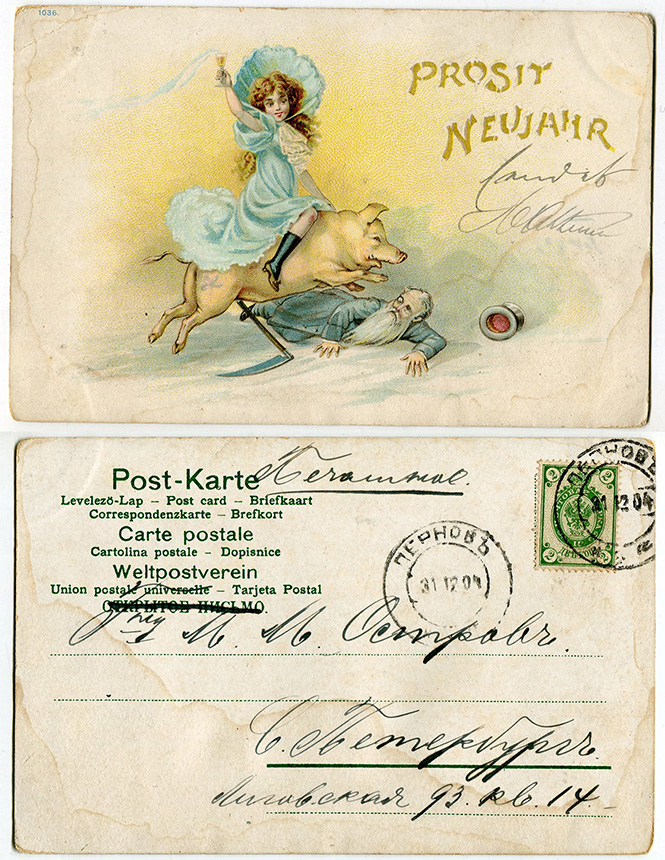 1036.
PROSIT
NEUJAHR
Post-Karte Печатное.
Levelező-Lap – Post card – Briefkaart
Correspondenzkarte – Brefkort
Carte postale
Cartolina postale – Dopisnice
Weltpostverein
Union postale universelle – Tarjeta Postal
ОТКРЫТОЕ ПИСЬМО.
ПЕРНОВЪ
31 12 04
ПЕРНОВЪ
31 12 04
2 2
2 2
М. М. Островъ.
С. Петербургъ.
Лиговская 93. кв. 14 –